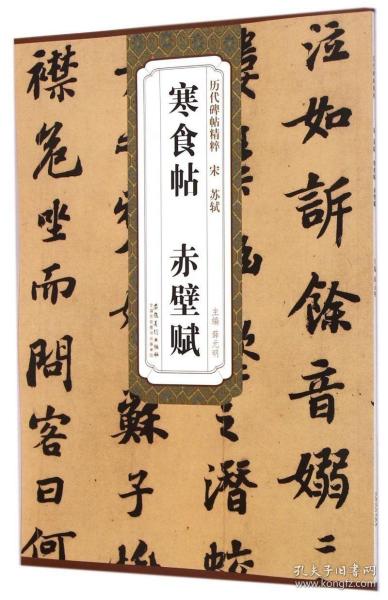 历代碑帖精粹 宋 苏轼
寒食帖 赤壁赋
主编 薛元明
安徽美术出版社
泣如訴餘音嫋二
之潛蛟
蘇子愀
襟危坐而問客曰何
孔夫子旧书网
www.kongfz.com